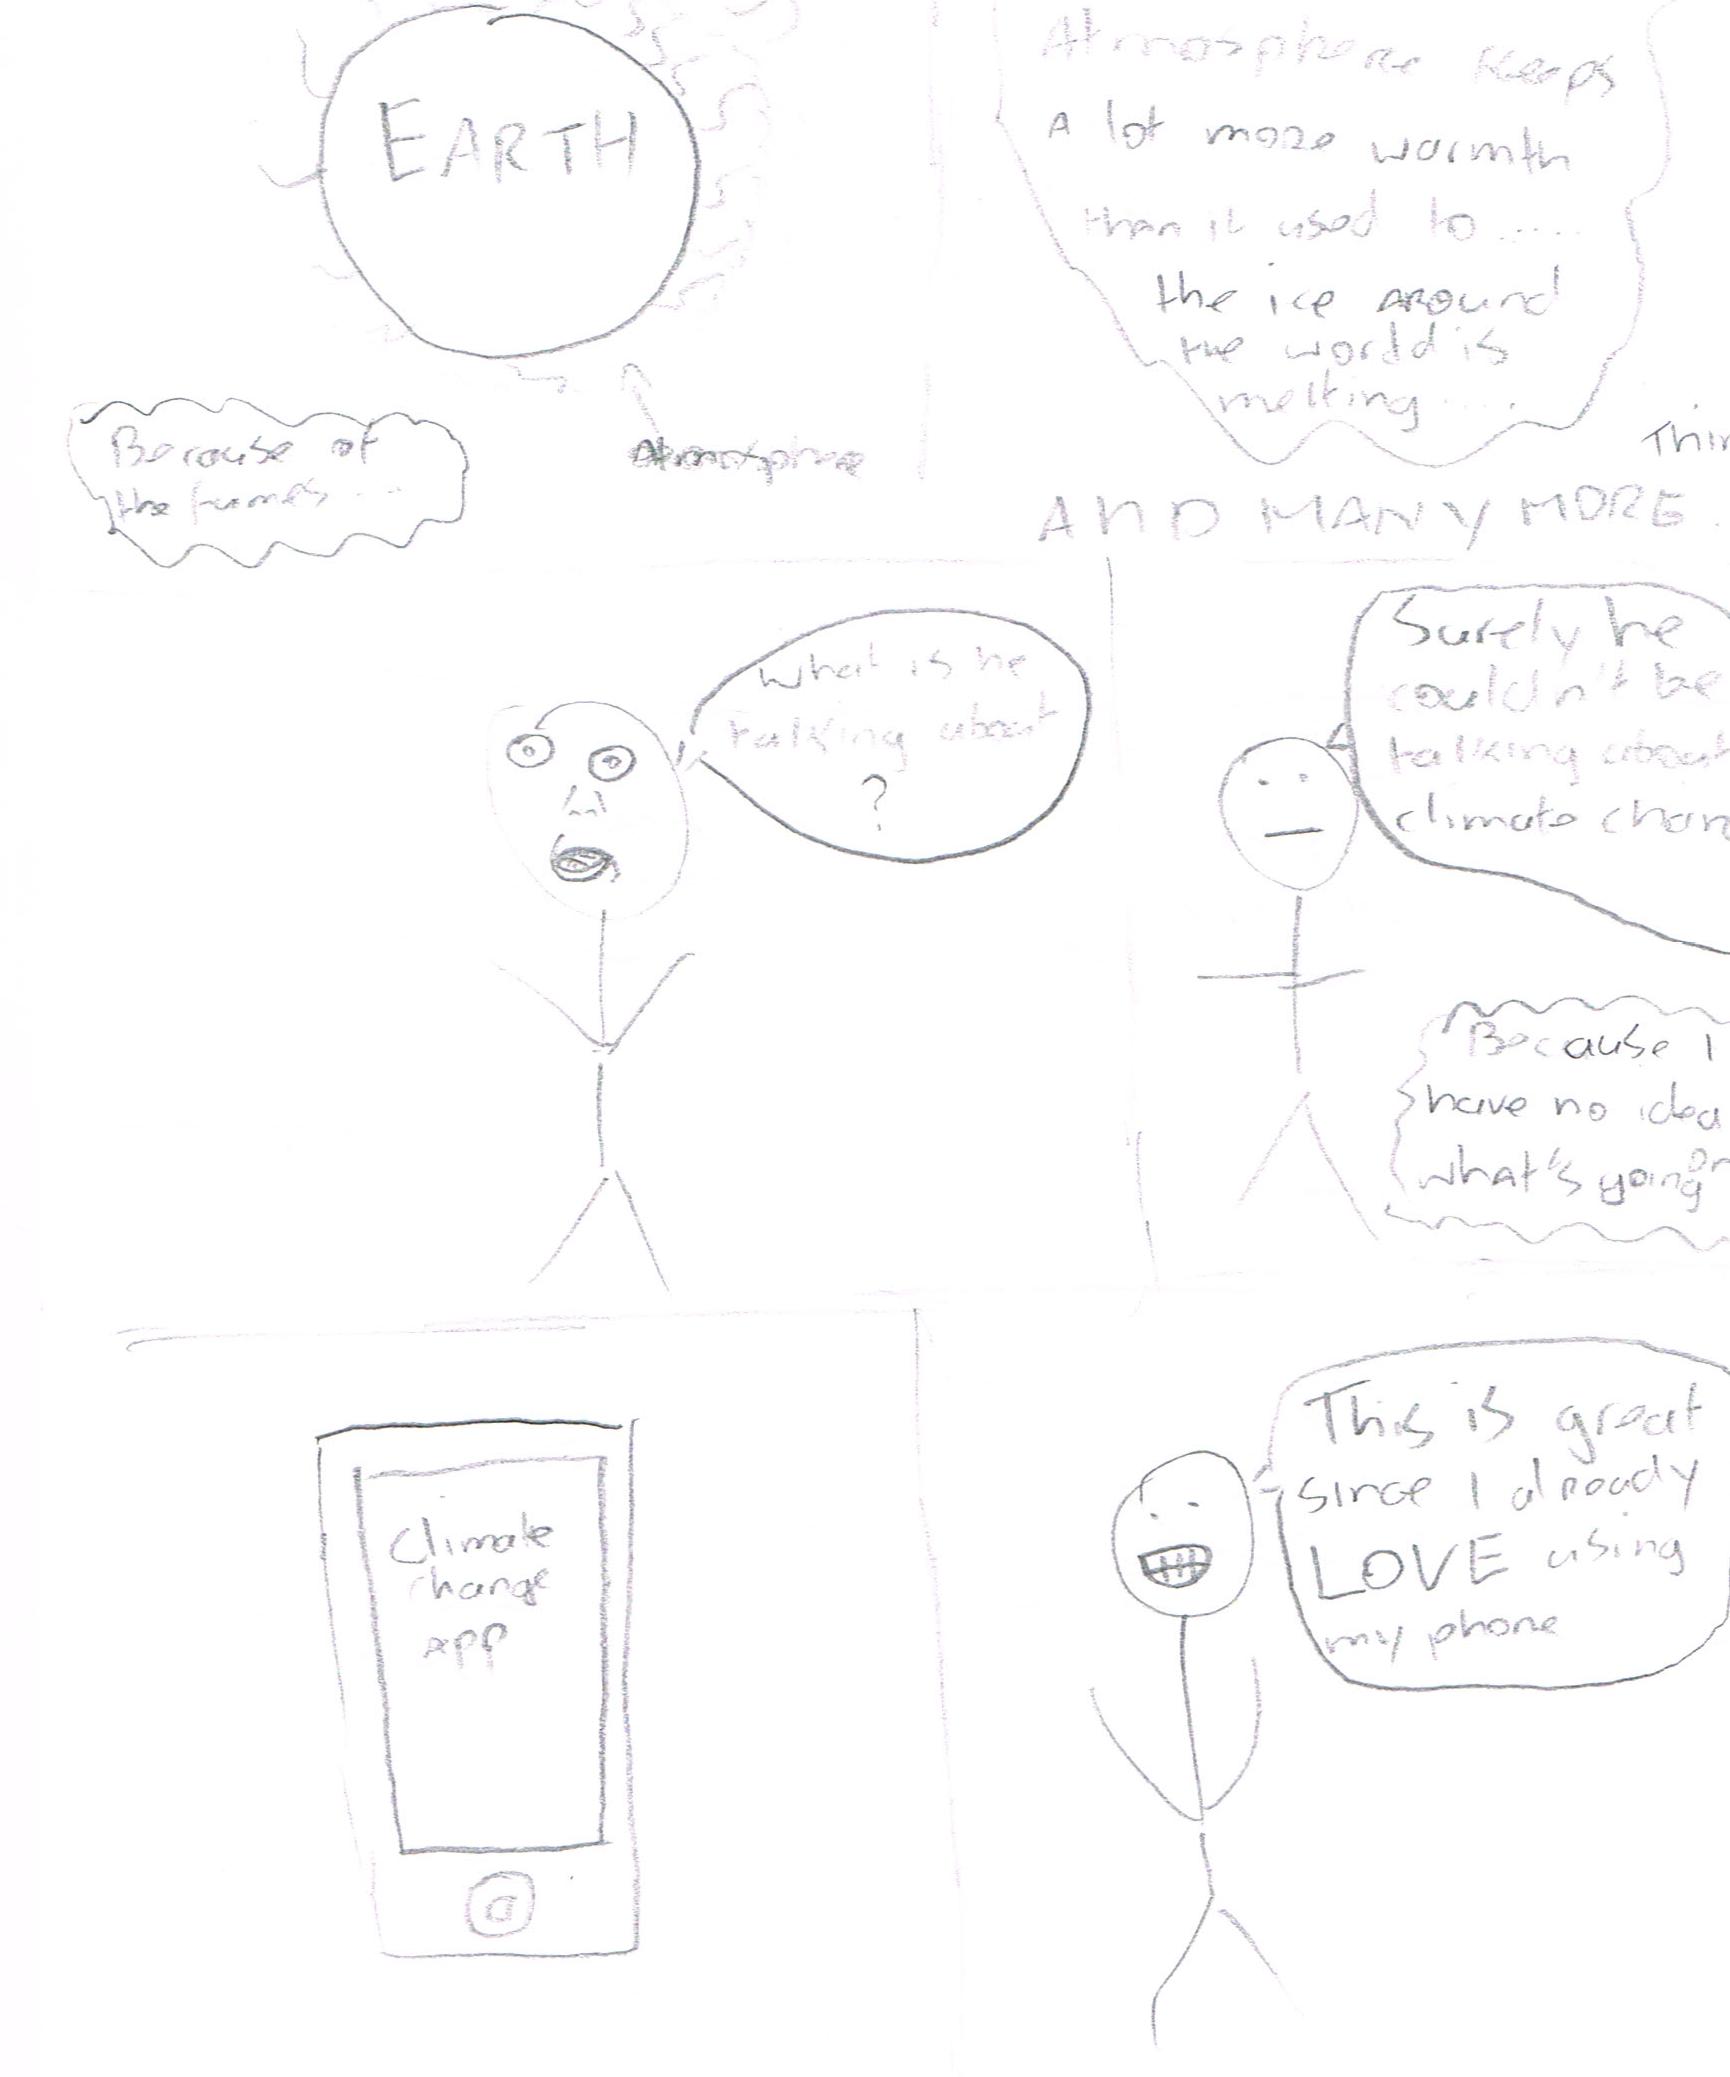 EARTH
Atmosphere
Because of
the fumes...
Atmosphere keeps
A lot more warmth
than it used to.....
the ice around
the world is
melting....
AND MANY MORE.
What is he
talking about
?
Surely he
couldn't be
talking about
climate
Because I
have no idea
what's going on
Climate
change
app
This is great
since I already
LOVE using
my phone